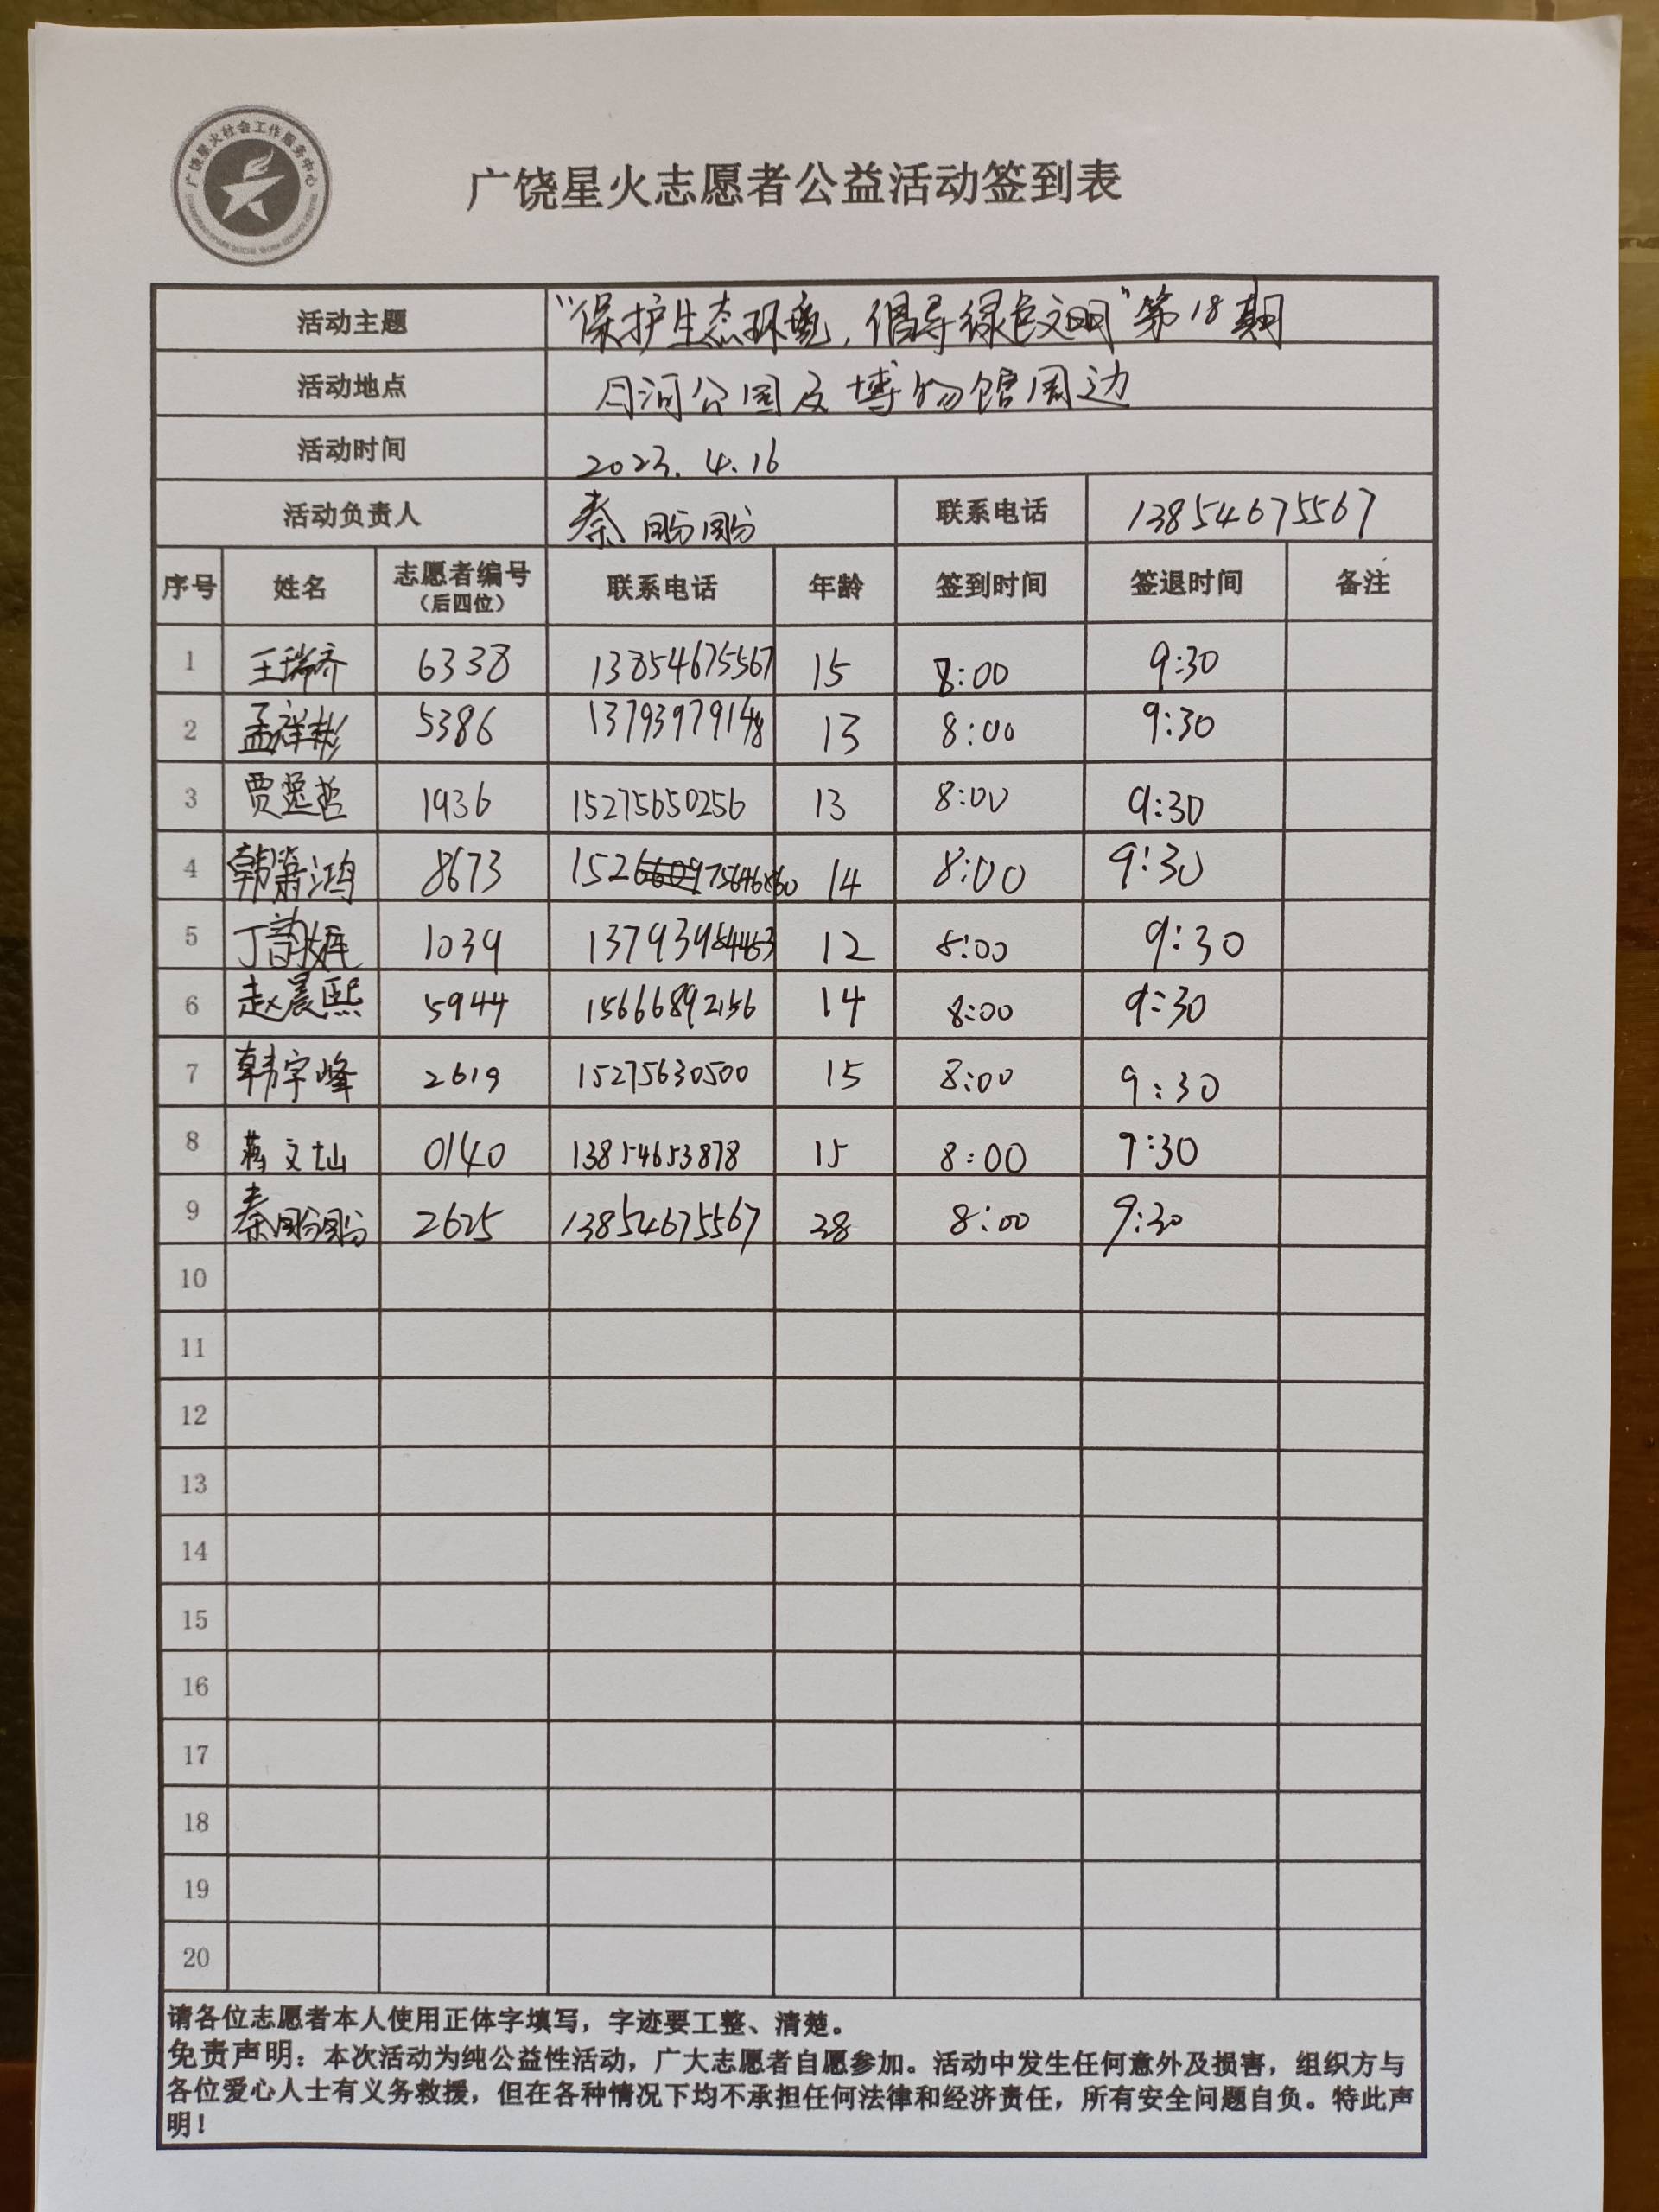 广饶星火社会工作服务中心
广饶星火志愿者公益活动签到表
活动主题 “保护生态环境，倡导绿色文明”第18期
活动地点 月河公园及博物馆周边
活动时间 2023.4.16
活动负责人 秦盼盼 联系电话 13854675567
序号 姓名 志愿者编号（后四位） 联系电话 年龄 签到时间 签退时间 备注
1 王瑞齐 6338 13854675567 15 8:00 9:30
2 孟祥彬 5386 13793979148 13 8:00 9:30
3 贾逕哲 1936 15275650256 13 8:00 9:30
4 韩箫鸿 8673 14 8:00 9:30
5 丁韵 1039 12 8:00 9:30
6 赵晨熙 5944 15666892156 14 8:00 9:30
7 韩宇峰 2619 15275630500 15 8:00 9:30
8 蒋文灿 0140 13854653878 15 8:00 9:30
9 秦盼盼 2625 13854675567 28 8:00 9:30
10
11
12
13
14
15
16
17
18
19
20
请各位志愿者本人使用正体字填写，字迹要工整、清楚。
免责声明：本次活动为纯公益性活动，广大志愿者自愿参加。活动中发生任何意外及损害，组织方与
各位爱心人士有义务救援，但在各种情况下均不承担任何法律和经济责任，所有安全问题自负。特此声
明！